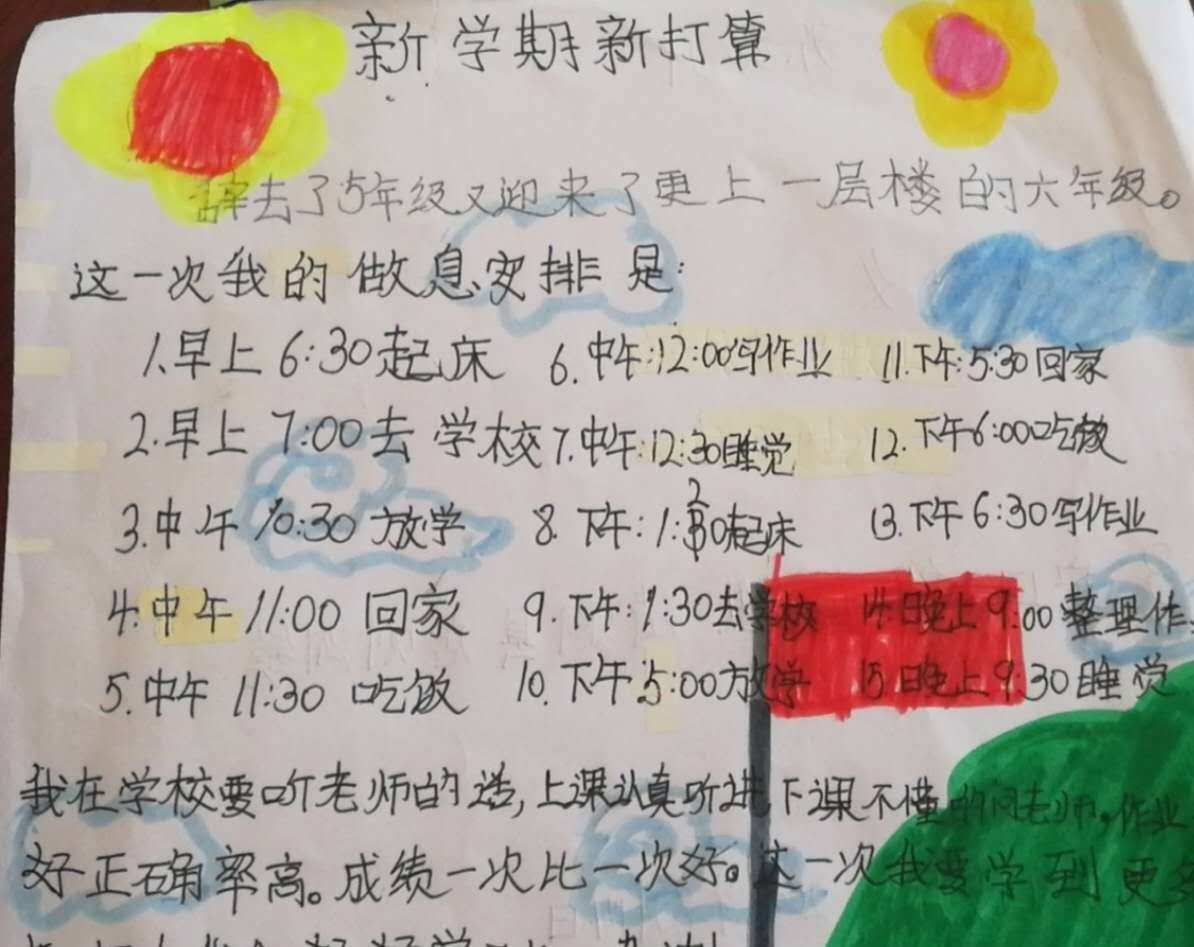 新学期新打算
辞去了5年级又迎来了更上一层楼的六年级。
这一次我的做息安排是:
1.早上6:30起床 6.中午:12:00写作业 11.下午:5:30回家
2.早上7:00去学校 7.中午:12:30睡觉 12.下午6:00吃饭
3.中午10:30放学 8.下午:1:20起床 13.下午6:30写作业
4.中午11:00回家 9.下午:1:30去学校 14.晚上9:00整理作
5.中午11:30吃饭 10.下午:5:00放学 15.晚上9:30睡觉
我在学校要听老师的话,上课认真听讲下课不懂的问老师。作业
好正确率高。成绩一次比一次好。这一次我要学到更多